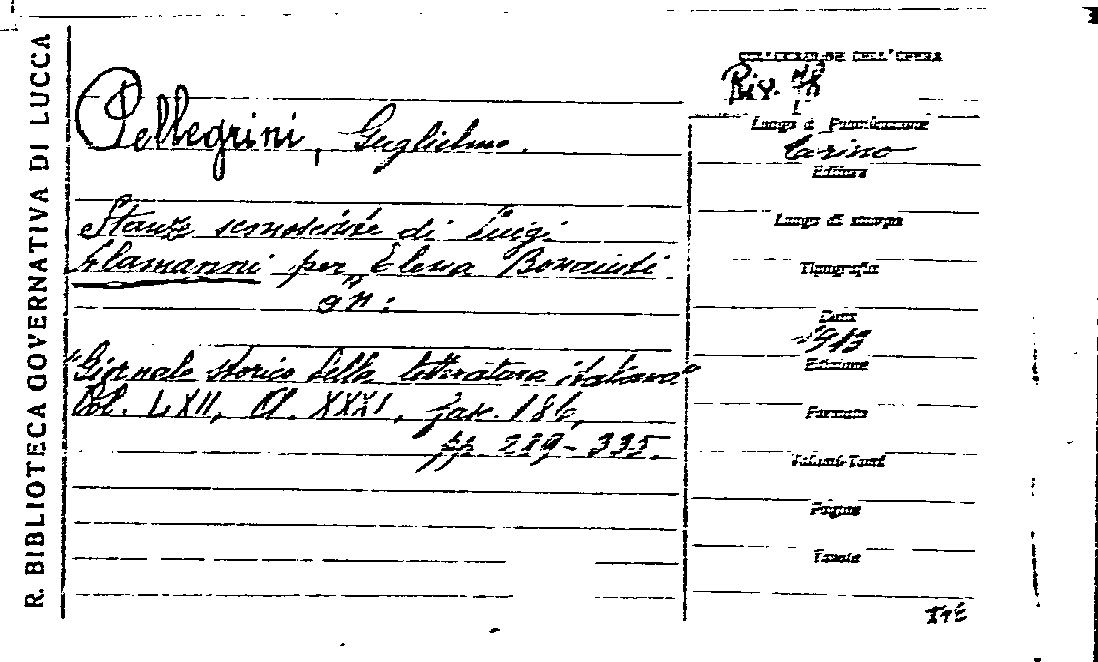 R. BIBLIOTECA GOVERNATIVA DI LUCCA
Pellegrini, Guglielmo.
Stanze sconosciute di Luigi
Alamanni per Elena Bonaiuti
in:
"Giornale storico della letteratura italiana"
Vol. LXII, A. XXXI, fasc. 186,
pp. 289-335.
COLLOCAZIONE DELL'OPERA
Riv. 48
1
Luogo di Pubblicazione
Torino
Editore
Luogo di stampa
Tipografia
Data
1913
Edizione
Formato
Volumi-Tomi
Pagine
Tavole